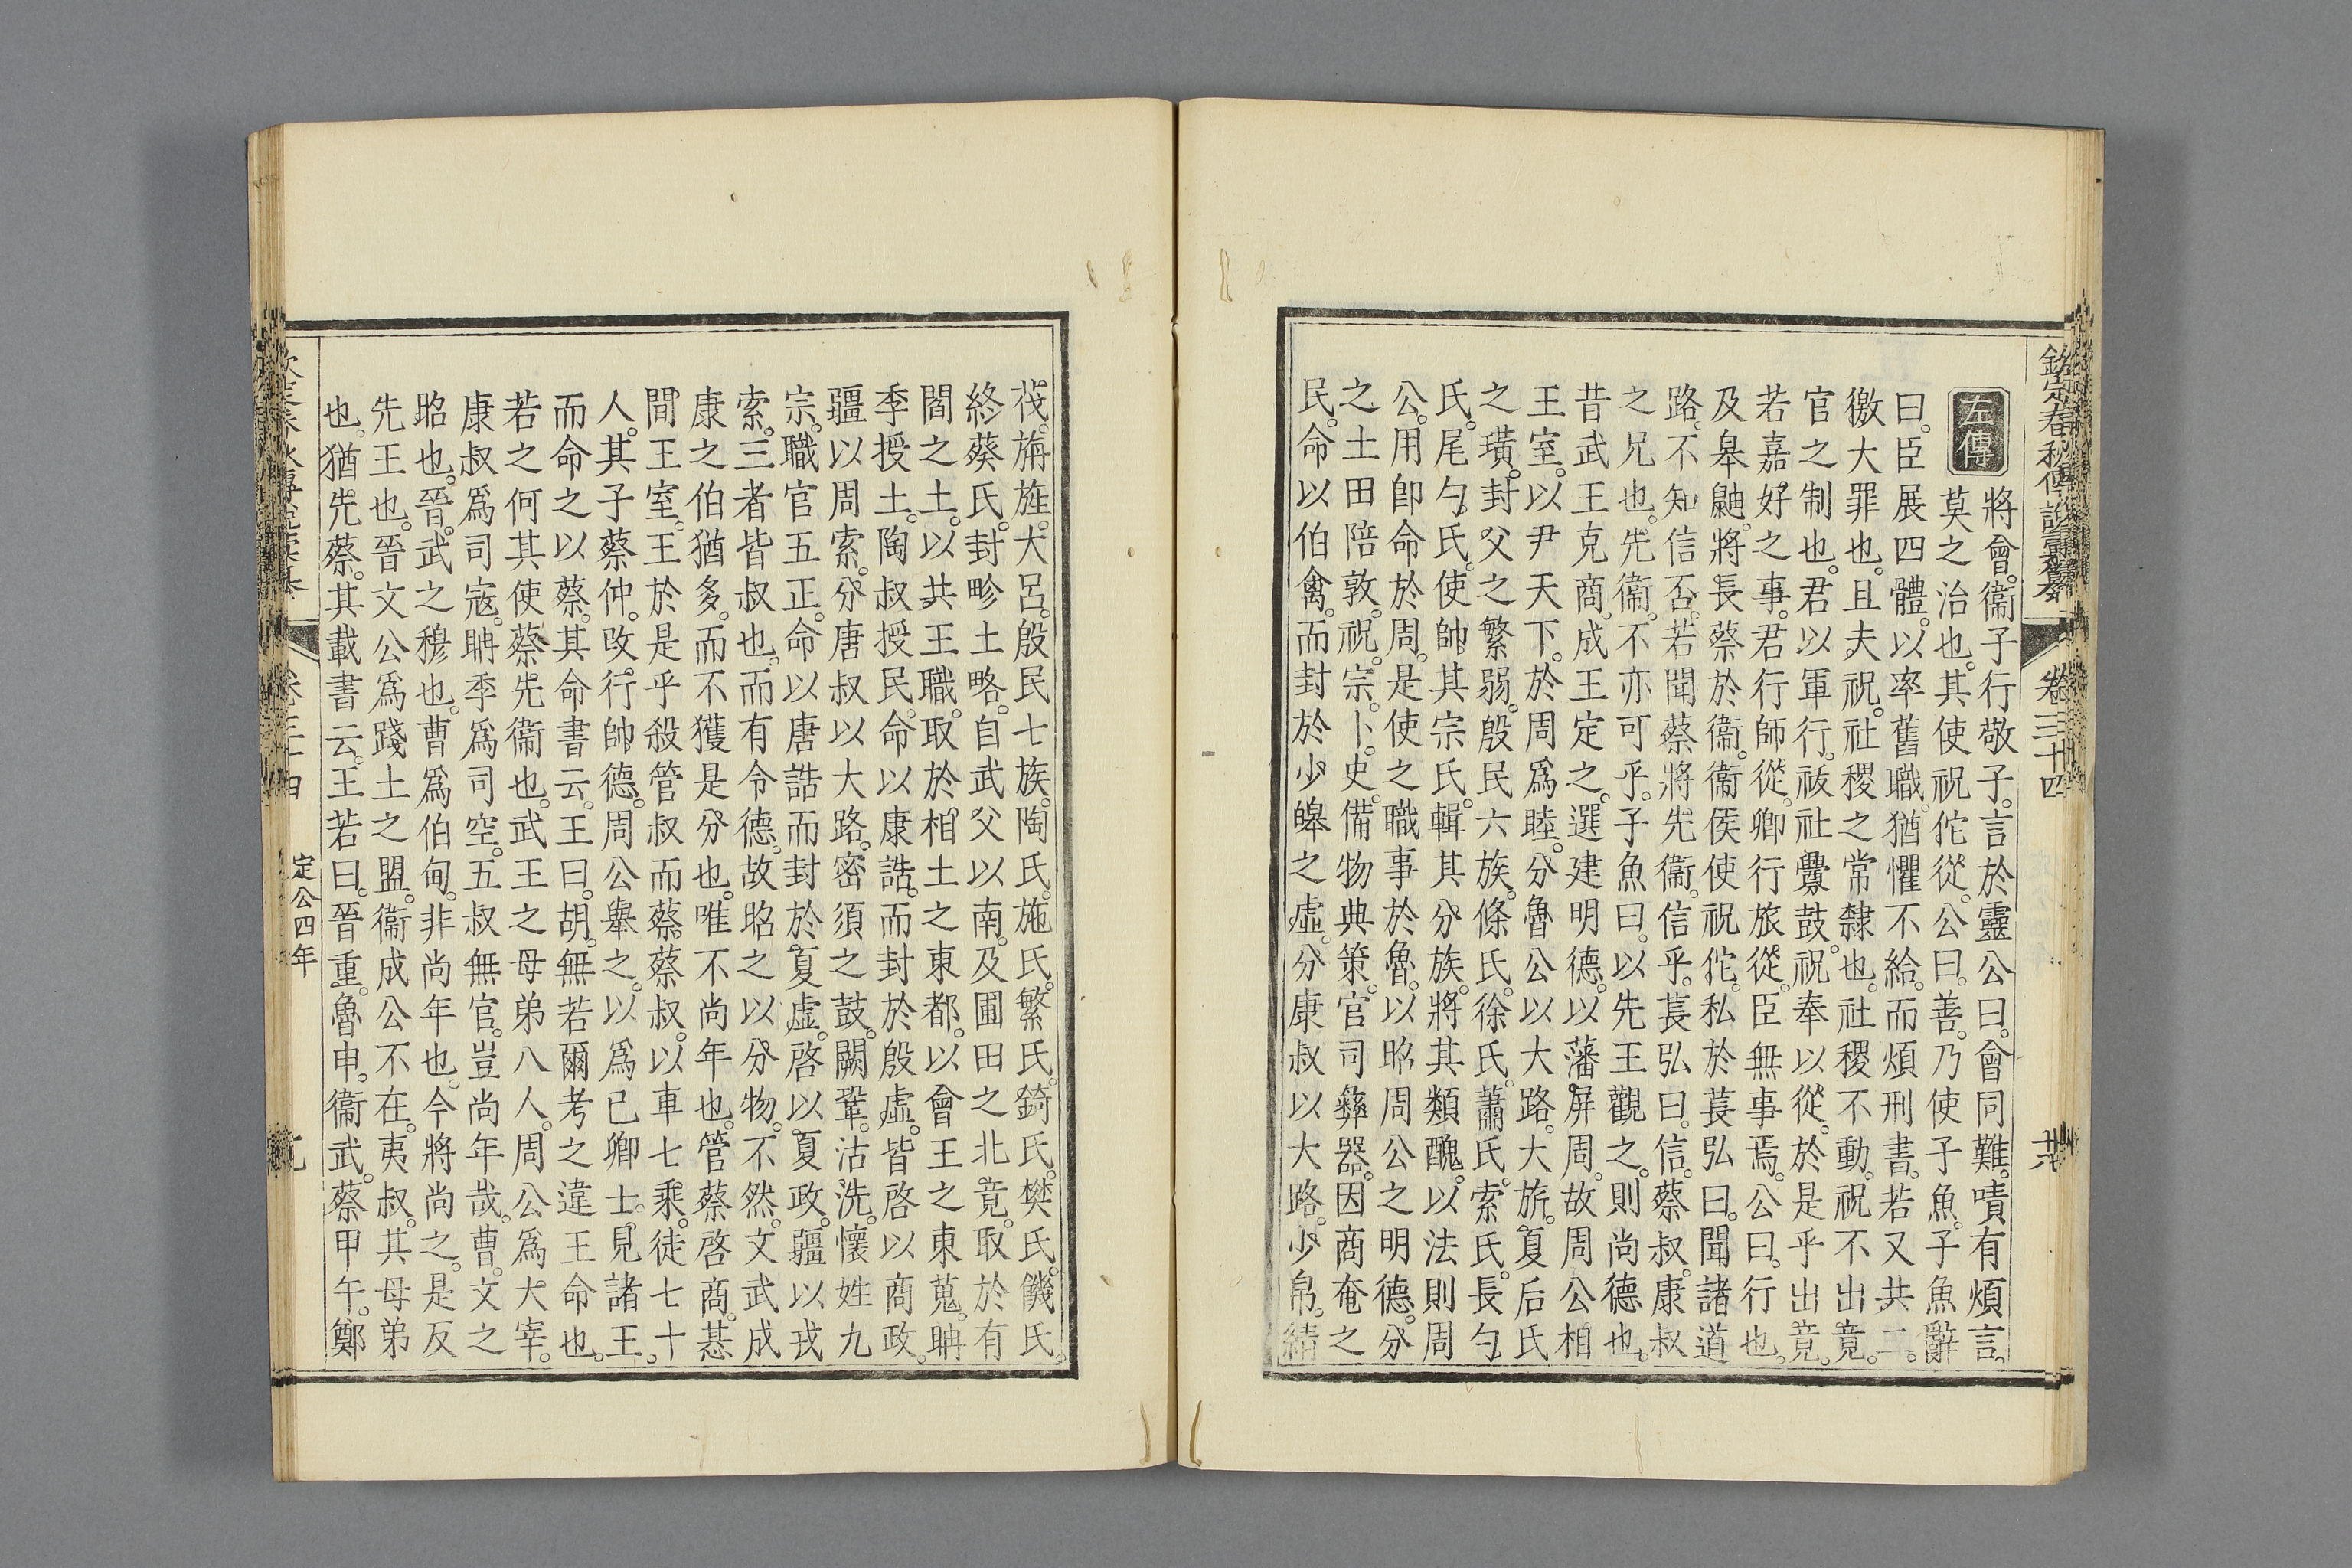 欽定春秋傳說彙纂 卷三十四
左傳
將會衞子行敬子言於靈公曰會同難嘖有煩言
莫之治也其使祝佗從公曰善乃使子魚子魚辭
曰臣展四體以率舊職猶懼不給而煩刑書若又共二
徼大罪也且夫祝社稷之常隸也社稷不動祝不出竟
官之制也君以軍行祓社釁鼓祝奉以從於是乎出竟
若嘉好之事君行師從卿行旅從臣無事焉公曰行也
及皋鼬將長蔡於衞衞侯使祝佗私於萇弘曰聞諸道
路不知信否若聞蔡將先衞信乎萇弘曰信蔡叔康叔
之兄也先衞不亦可乎子魚曰以先王觀之則尚德也
昔武王克商成王定之選建明德以藩屏周故周公相
王室以尹天下於周爲睦分魯公以大路大旂夏后氏
之璜封父之繁弱殷民六族條氏徐氏蕭氏索氏長勺
氏尾勺氏使帥其宗氏輯其分族將其類醜以法則周
公用卽命於周是使之職事於魯以昭周公之明德分
之土田陪敦祝宗卜史備物典策官司彝器因商奄之
民命以伯禽而封於少皞之虛分康叔以大路少帛綪
茷旃旌大呂殷民七族陶氏施氏繁氏錡氏樊氏饑氏
終葵氏封畛土略自武父以南及圃田之北竟取於有
閻之土以共王職取於相土之東都以會王之東蒐聃
季授土陶叔授民命以康誥而封於殷虛皆啓以商政
疆以周索分唐叔以大路密須之鼓闕鞏沽洗懷姓九
宗職官五正命以唐誥而封於夏虛啓以夏政疆以戎
索三者皆叔也而有令德故昭之以分物不然文武成
康之伯猶多而不獲是分也唯不尚年也管蔡啓商惎
間王室王於是乎殺管叔而蔡蔡叔以車七乘徒七十
人其子蔡仲改行帥德周公舉之以爲己卿士見諸王
而命之以蔡其命書云王曰胡無若爾考之違王命也
若之何其使蔡先衞也武王之母弟八人周公爲大宰
康叔爲司寇聃季爲司空五叔無官豈尚年哉曹文之
昭也晉武之穆也曹爲伯甸非尚年也今將尚之是反
先王也晉文公爲踐土之盟衞成公不在夷叔其母弟
也猶先蔡其載書云王若曰晉重魯申衞武蔡甲午鄭
卷三十四 定公四年